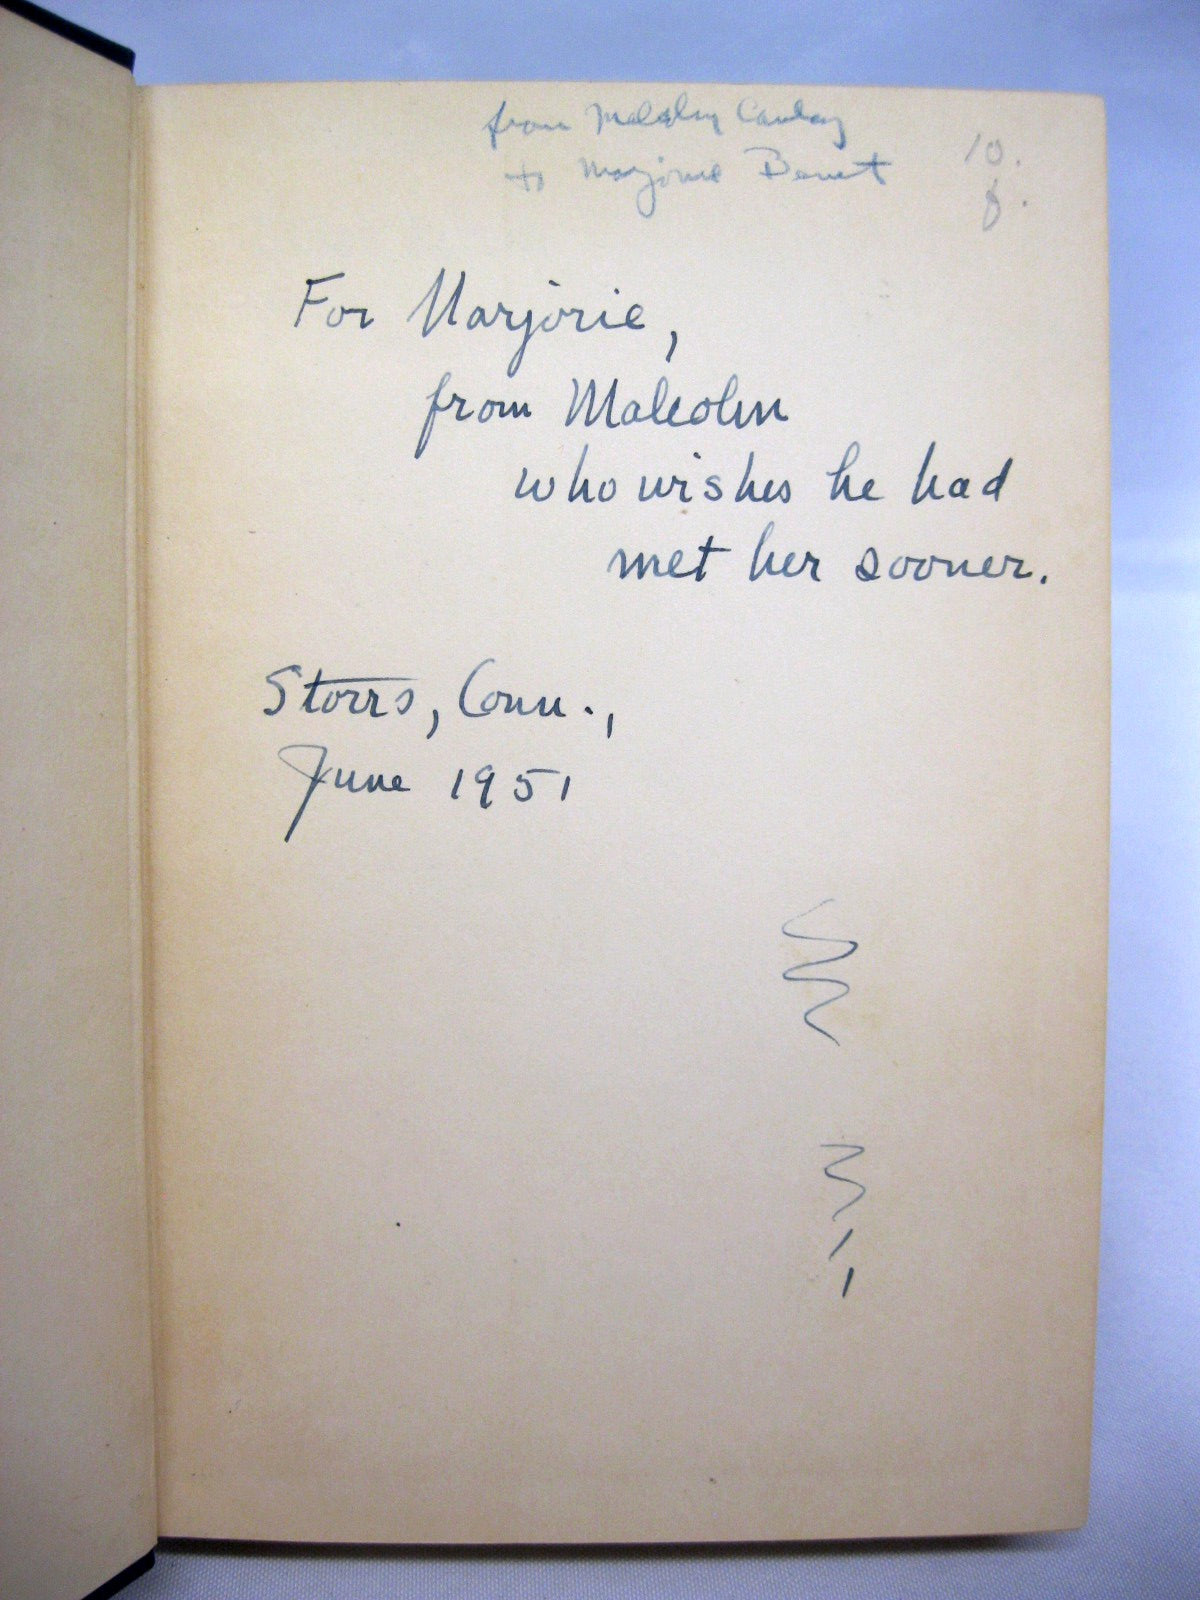 from Malcolm Cowley
to Marjorie Benet
10.
For Marjorie,
from Malcolm
who wishes he had
met her sooner.
Storrs, Conn.,
June 1951